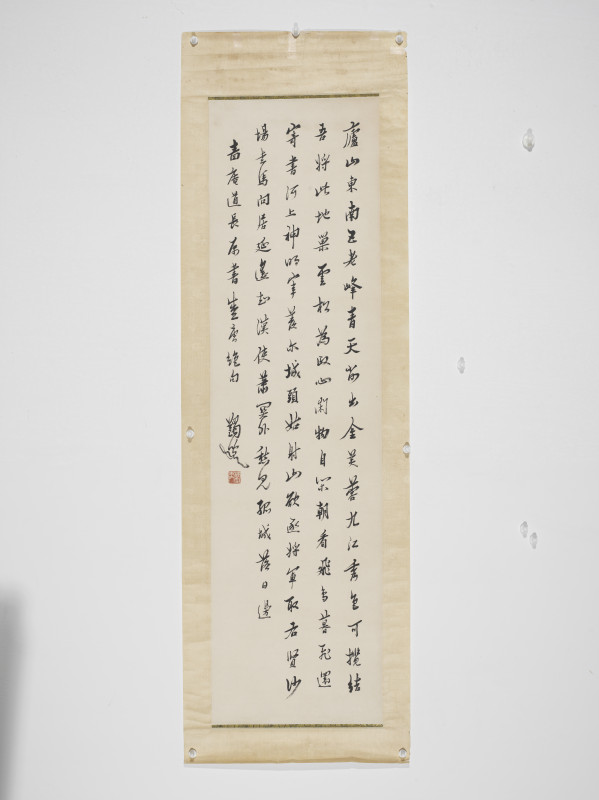 廬山東南五老峰青天削出金芙蓉九江秀色可攬結
吾將此地巢雲松為政心閑物自閑朝看飛鳥暮飛還
寄書河上神明宰羨爾城頭姑射山欲逐將軍取右賢沙
場走馬向居延遙知漢使蕭關外愁見孤城落日邊
庵道長屬書盛唐絕句